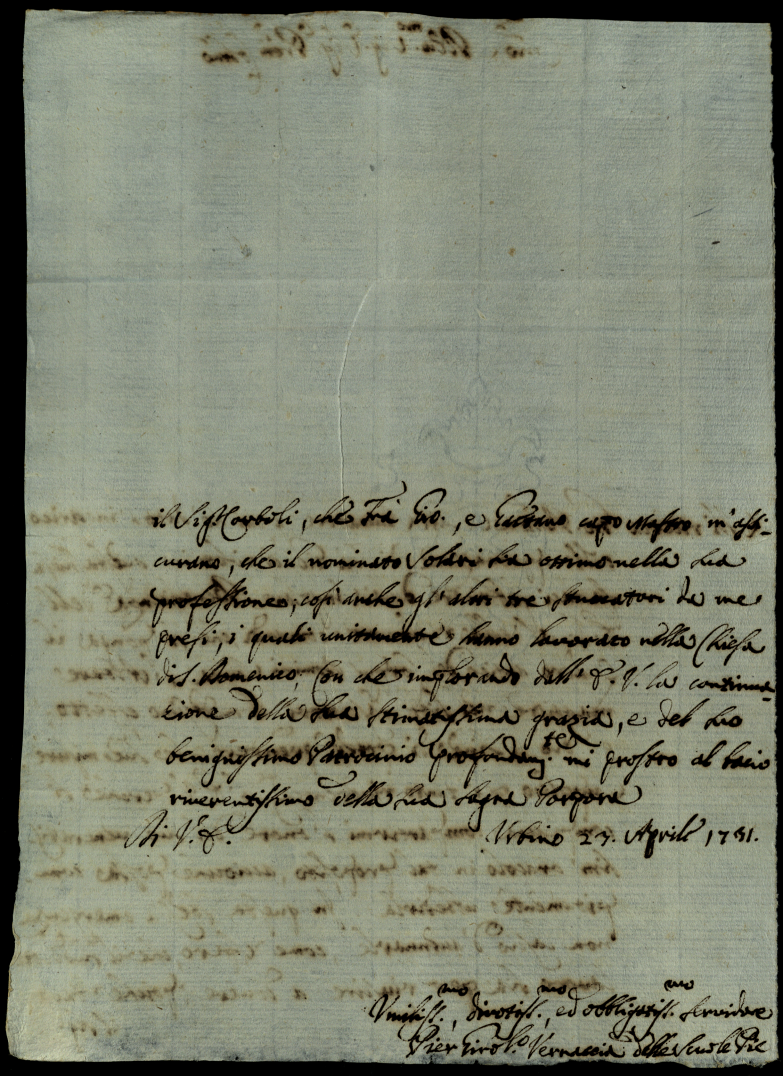 il Sig.r Corboli, che Frà Gio., e Gaetano capo Mastro m'assi-
curano, che il nominato Solari sia ottimo nella sua
professione, così anche gl'altri tre stuccatori da me
presi, i quali unitamente hanno lavorato nella Chiesa
di S. Domenico; Con che implorando dall'E. V. la continua-
zione della sua stimatissima grazia, e del suo
benignissimo Patrocinio profondam.te mi prostro al bacio
riverentissimo della sua Sagra Porpora
Di V.E.
Urbino 23. Aprile 1731.
Umiliss.mo, divotiss.mo, ed obbligatiss.mo Servidore
Pier Girol.o Vernaccia delle Scuole Pie